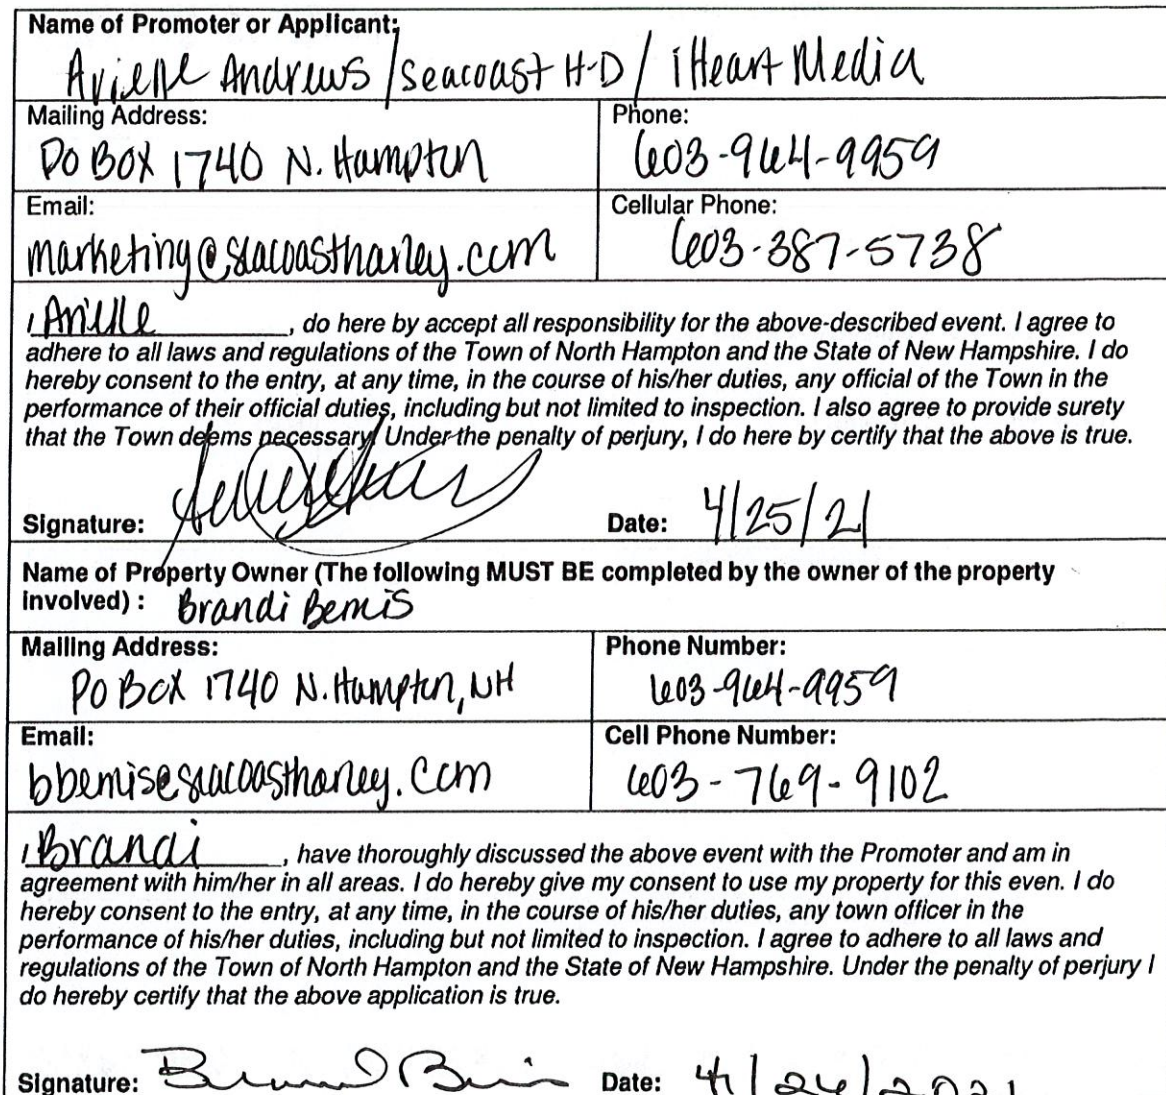 Name of Promoter or Applicant:
Arielle Andrews / Seacoast H-D / iHeart Media
Mailing Address:
PO BOX 1740 N. Hampton
Phone:
603-964-9959
Email:
marketing@seacoastharley.com
Cellular Phone:
603-387-5738
I Arielle, do here by accept all responsibility for the above-described event. I agree to
adhere to all laws and regulations of the Town of North Hampton and the State of New Hampshire. I do
hereby consent to the entry, at any time, in the course of his/her duties, any official of the Town in the
performance of their official duties, including but not limited to inspection. I also agree to provide surety
that the Town deems necessary. Under the penalty of perjury, I do here by certify that the above is true.
Signature:
Date: 4/25/21
Name of Property Owner (The following MUST BE completed by the owner of the property
involved) : Brandi Bemis
Mailing Address:
PO BOX 1740 N. Hampton, NH
Phone Number:
603-964-9959
Email:
bbemis@seacoastharley.com
Cell Phone Number:
603-769-9102
I Brandi, have thoroughly discussed the above event with the Promoter and am in
agreement with him/her in all areas. I do hereby give my consent to use my property for this even. I do
hereby consent to the entry, at any time, in the course of his/her duties, any town officer in the
performance of his/her duties, including but not limited to inspection. I agree to adhere to all laws and
regulations of the Town of North Hampton and the State of New Hampshire. Under the penalty of perjury I
do hereby certify that the above application is true.
Signature:
Date: 4/26/2021